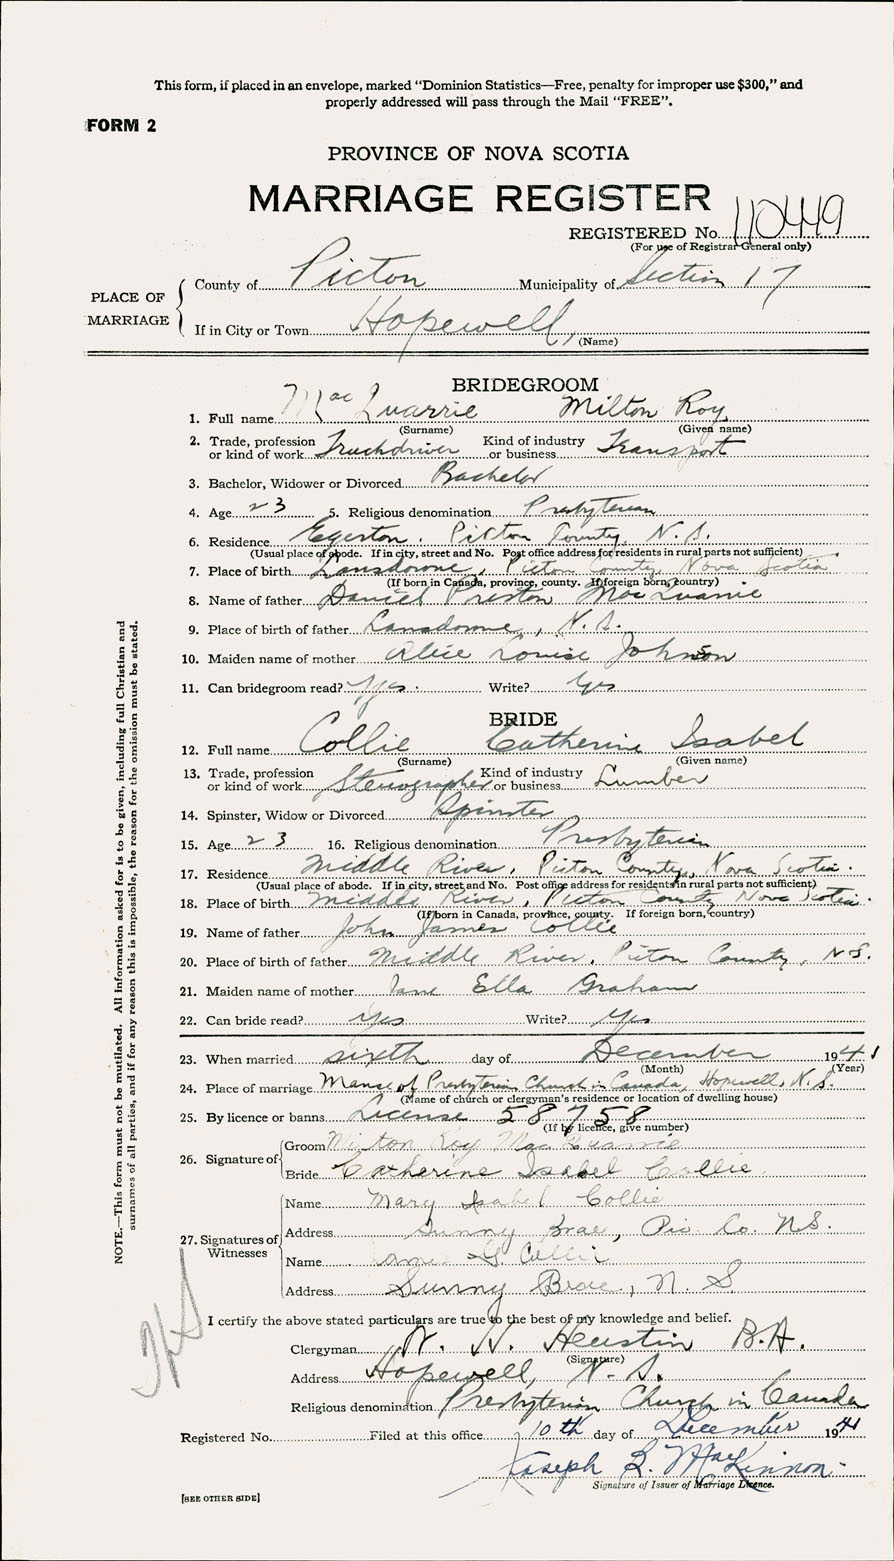 This form, if placed in an envelope, marked “Dominion Statistics—Free, penalty for improper use $300,” and
properly addressed will pass through the Mail “FREE”.
FORM 2
PROVINCE OF NOVA SCOTIA
MARRIAGE REGISTER
REGISTERED No. 110449
(For use of Registrar General only)
PLACE OF MARRIAGE
County of Pictou Municipality of Section 17
If in City or Town Hopewell,
(Name)
BRIDEGROOM
1. Full name MacQuarrie Milton Roy
(Surname) (Given name)
2. Trade, profession or kind of work Truckdriver Kind of industry or business Transport
3. Bachelor, Widower or Divorced Bachelor
4. Age 23 5. Religious denomination Presbyterian
6. Residence Egerton, Pictou County, N.S.
(Usual place of abode. If in city, street and No. Post office address for residents in rural parts not sufficient)
7. Place of birth Lansdowne, Pictou County, Nova Scotia
(If born in Canada, province, county. If foreign born, country)
8. Name of father Daniel Preston MacQuarrie
9. Place of birth of father Lansdowne, N.S.
10. Maiden name of mother Alice Louise Johnson
11. Can bridegroom read? Yes. Write? Yes
BRIDE
12. Full name Collie Catherine Isabel
(Surname) (Given name)
13. Trade, profession or kind of work Stenographer Kind of industry or business Lumber
14. Spinster, Widow or Divorced Spinster
15. Age 23 16. Religious denomination Presbyterian
17. Residence Middle River, Pictou County, Nova Scotia.
(Usual place of abode. If in city, street and No. Post office address for residents in rural parts not sufficient)
18. Place of birth Middle River, Pictou County Nova Scotia.
(If born in Canada, province, county. If foreign born, country)
19. Name of father John James Collie
20. Place of birth of father Middle River, Pictou County, N.S.
21. Maiden name of mother Jane Ella Graham
22. Can bride read? Yes Write? Yes
23. When married sixth day of December 1941
(Month) (Year)
24. Place of marriage Manse of Presbyterian Church in Canada, Hopewell, N.S.
(Name of church or clergyman's residence or location of dwelling house)
25. By licence or banns License 58758
(If by licence, give number)
26. Signature of
Groom Milton Roy MacQuarrie
Bride Catherine Isabel Collie
27. Signatures of Witnesses
Name Mary Isabel Collie
Address Sunny Brae, Pic. Co. N.S.
Name James G Collie
Address Sunny Brae, N.S
I certify the above stated particulars are true to the best of my knowledge and belief.
Clergyman B.A.
(Signature)
Address Hopewell, N.S.
Religious denomination Presbyterian Church in Canada
Registered No. Filed at this office 10th day of December 1941
Joseph MacKinnon
Signature of Issuer of Marriage Licence.
[SEE OTHER SIDE]
NOTE.—This form must not be mutilated. All information asked for is to be given, including full Christian and
surnames of all parties, and if for any reason this is impossible, the reason for the omission must be stated.